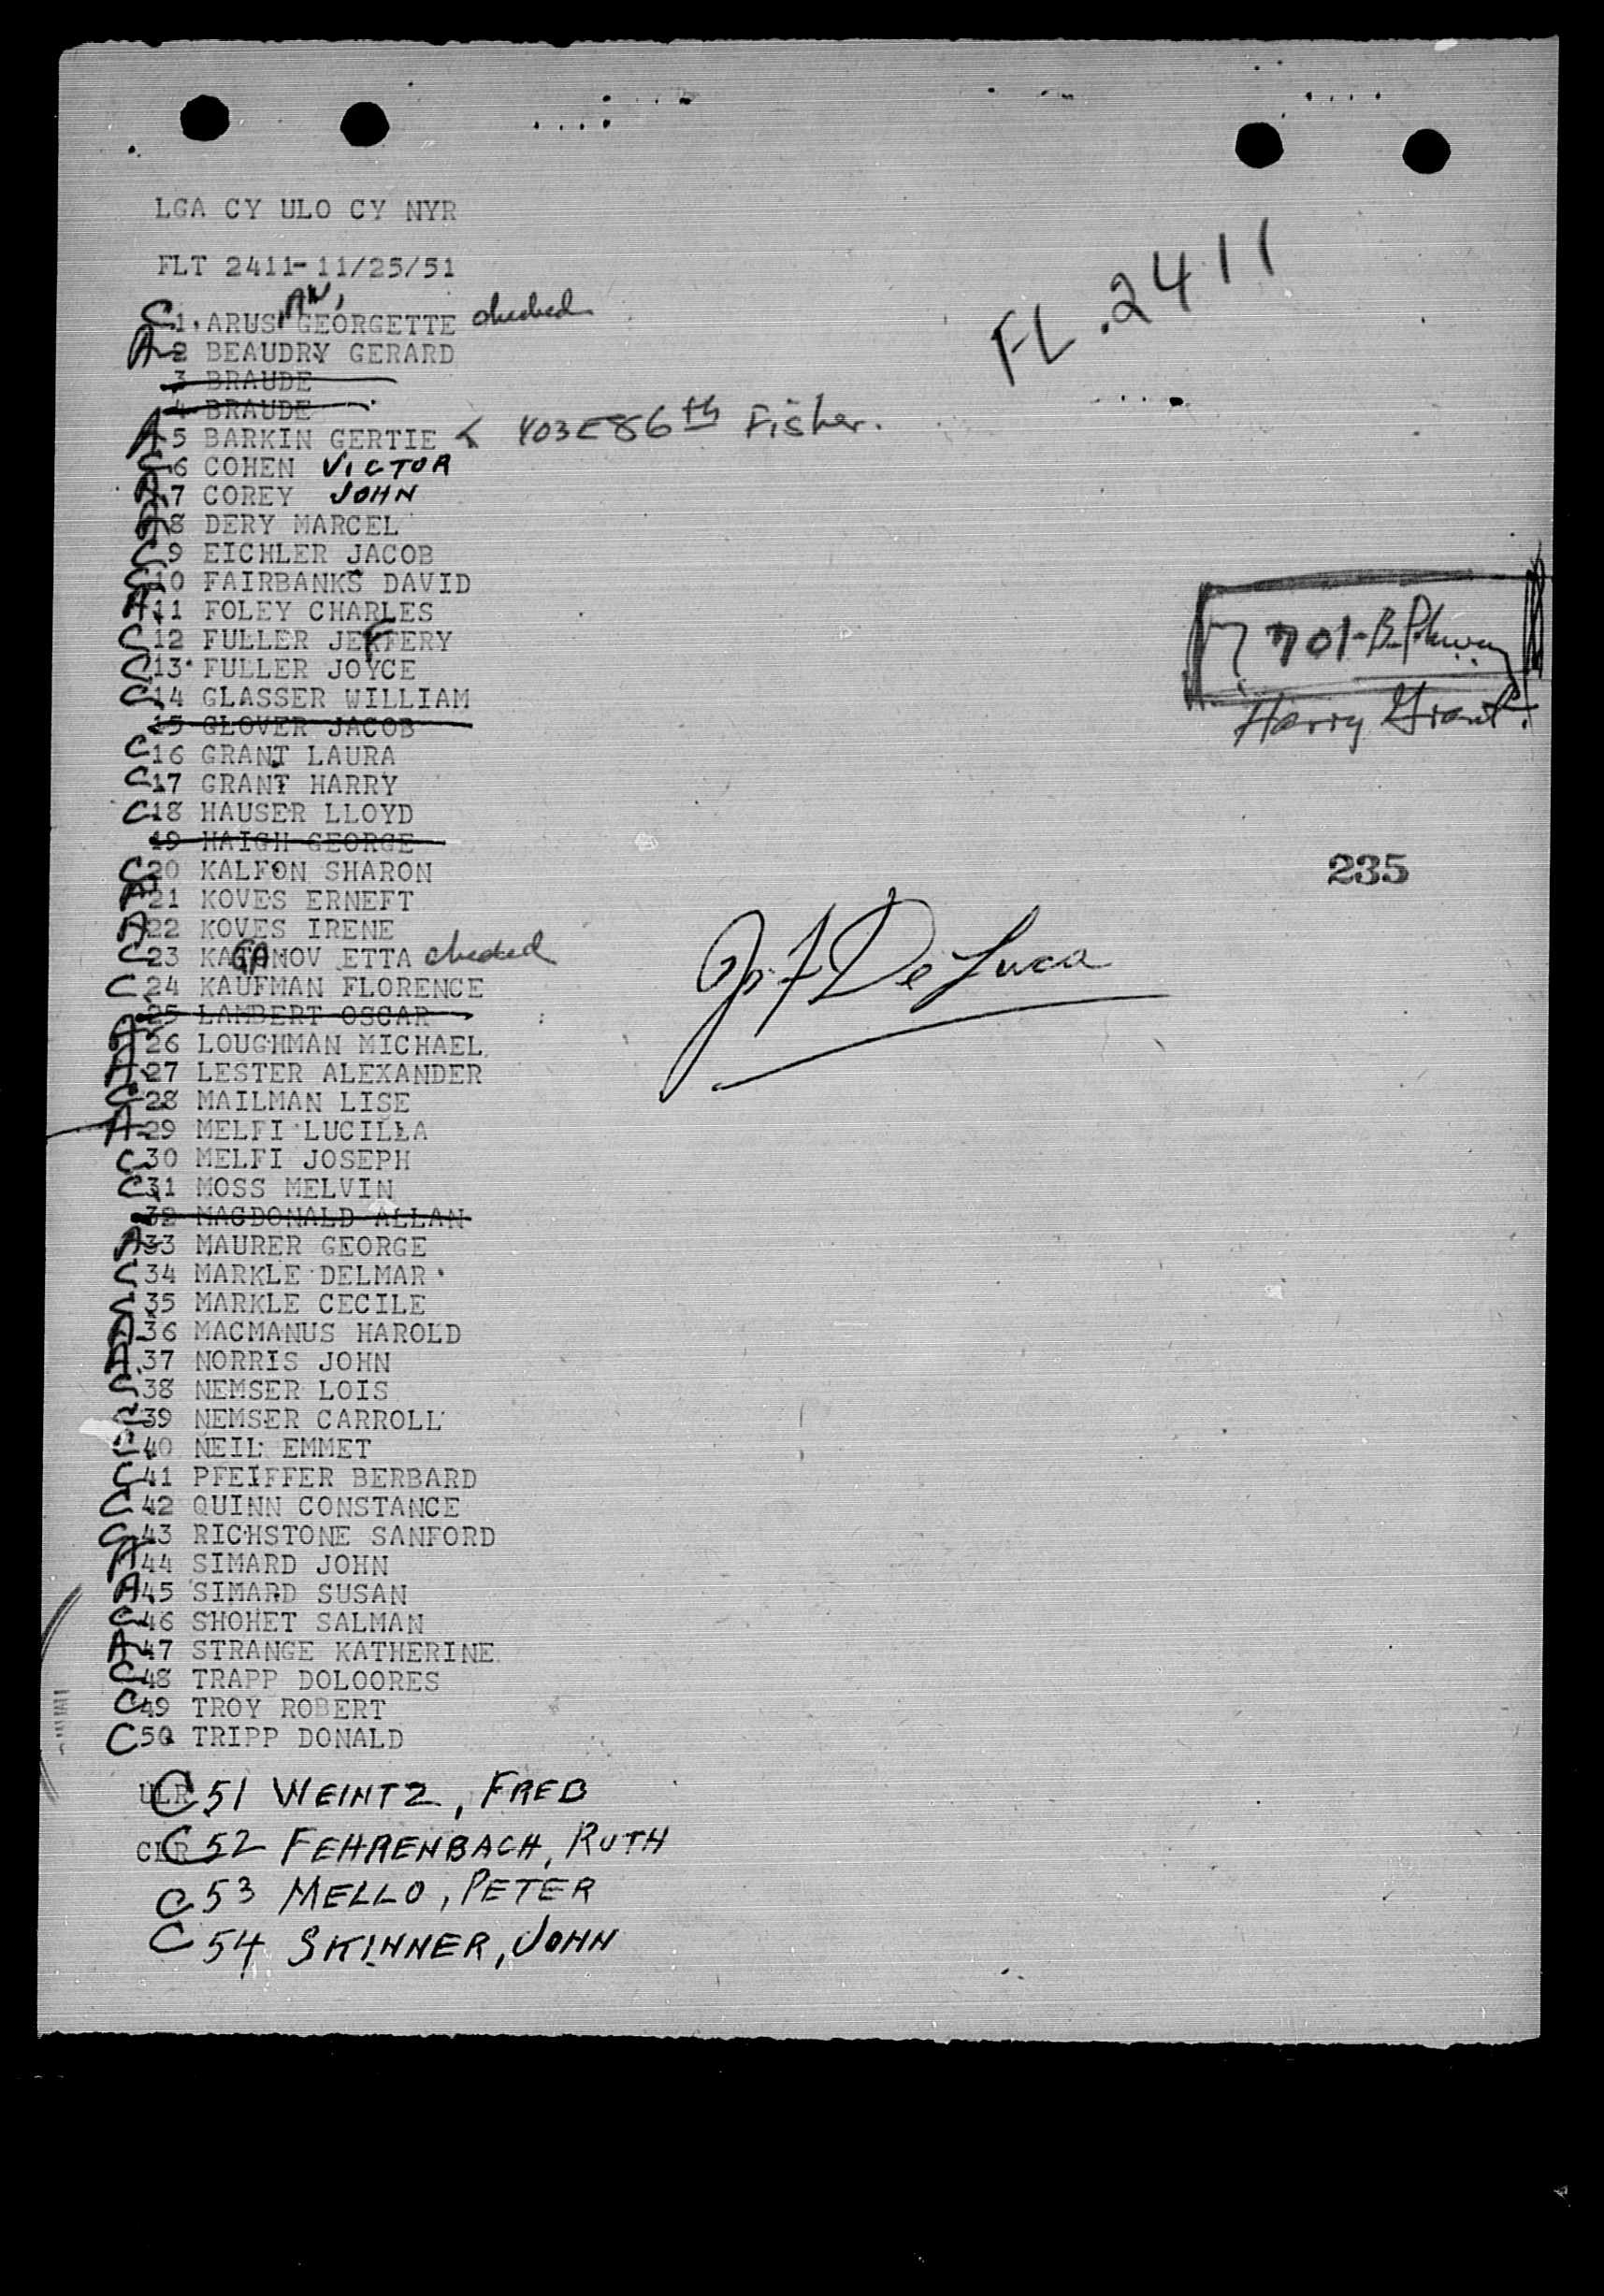 LGA CY ULO CY NYR
FLT 2411-11/25/51
FL. 2411
C 1. ARUS GEORGETTE checked
A 2 BEAUDRY GERARD
3 BRAUDE
4 BRAUDE
A 5 BARKIN GERTIE < 403 E 86th Fisher.
C 6 COHEN VICTOR
A 7 COREY JOHN
A 8 DERY MARCEL
C 9 EICHLER JACOB
C 10 FAIRBANKS DAVID
A 11 FOLEY CHARLES
C 12 FULLER JEFFERY
C 13 FULLER JOYCE
7701-
C 14 GLASSER WILLIAM
Harry Grant.
15 GLOVER JACOB
C 16 GRANT LAURA
C 17 GRANT HARRY
C 18 HAUSER LLOYD
19 HAIGH GEORGE
235
C 20 KALFON SHARON
A 21 KOVES ERNEFT
A 22 KOVES IRENE
C 23 KAGANOV ETTA checked
De Luca
C 24 KAUFMAN FLORENCE
25 LAMBERT OSCAR
A 26 LOUGHMAN MICHAEL
A 27 LESTER ALEXANDER
C 28 MAILMAN LISE
A 29 MELFI LUCILLA
C 30 MELFI JOSEPH
C 31 MOSS MELVIN
32 MACDONALD ALLAN
A 33 MAURER GEORGE
C 34 MARKLE DELMAR
C 35 MARKLE CECILE
A 36 MACMANUS HAROLD
A 37 NORRIS JOHN
C 38 NEMSER LOIS
C 39 NEMSER CARROLL
C 40 NEIL EMMET
C 41 PFEIFFER BERBARD
C 42 QUINN CONSTANCE
C 43 RICHSTONE SANFORD
A 44 SIMARD JOHN
A 45 SIMARD SUSAN
C 46 SHOHET SALMAN
A 47 STRANGE KATHERINE
C 48 TRAPP DOLOORES
C 49 TROY ROBERT
C 50 TRIPP DONALD
ULR C 51 WEINTZ, FRED
CLR C 52 FEHRENBACH, RUTH
C 53 MELLO, PETER
C 54 SKINNER, JOHN